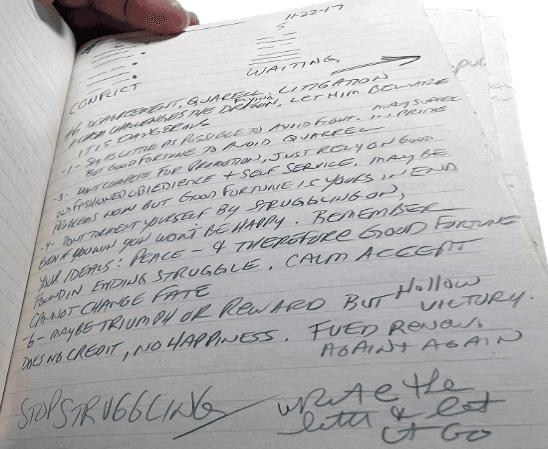 11-22-17
5
WAITING
CONFLICT
#6 DISAGREEMENT, QUARELL, LITIGATION
CHALLENGES THE FLYING DRAGON, LET HIM BEWARE
IT IS DANGEROUS
-1- SAY AS LITTLE AS POSSIBLE TO AVOID FIGHT. MAY SUFFER
BUT GOOD FORTUNE TO AVOID QUARREL IN PRIDE
-3- DON'T COMPETE FOR PROMOTION, JUST RELY ON GOOD
OLD FASHIONED OBEDIENCE + SELF SERVICE. MAY BE
PROBLEMS NOW BUT GOOD FORTUNE IS YOURS IN END
-4- DON'T TORMENT YOURSELF BY STRUGGLING ON,
EVEN IF YOU WIN YOU WON'T BE HAPPY. REMEMBER
YOUR IDEALS: PEACE - & THEREFORE GOOD FORTUNE
FOUND IN ENDING STRUGGLE. CALM ACCEPT
CANNOT CHANGE FATE
-6- MAYBE TRIUMPH OR REWARD BUT HOLLOW
VICTORY.
DOES NO CREDIT, NO HAPPINESS. FUED RENEW
AGAIN + AGAIN
STOP STRUGGLING
write the
letter & let
it go